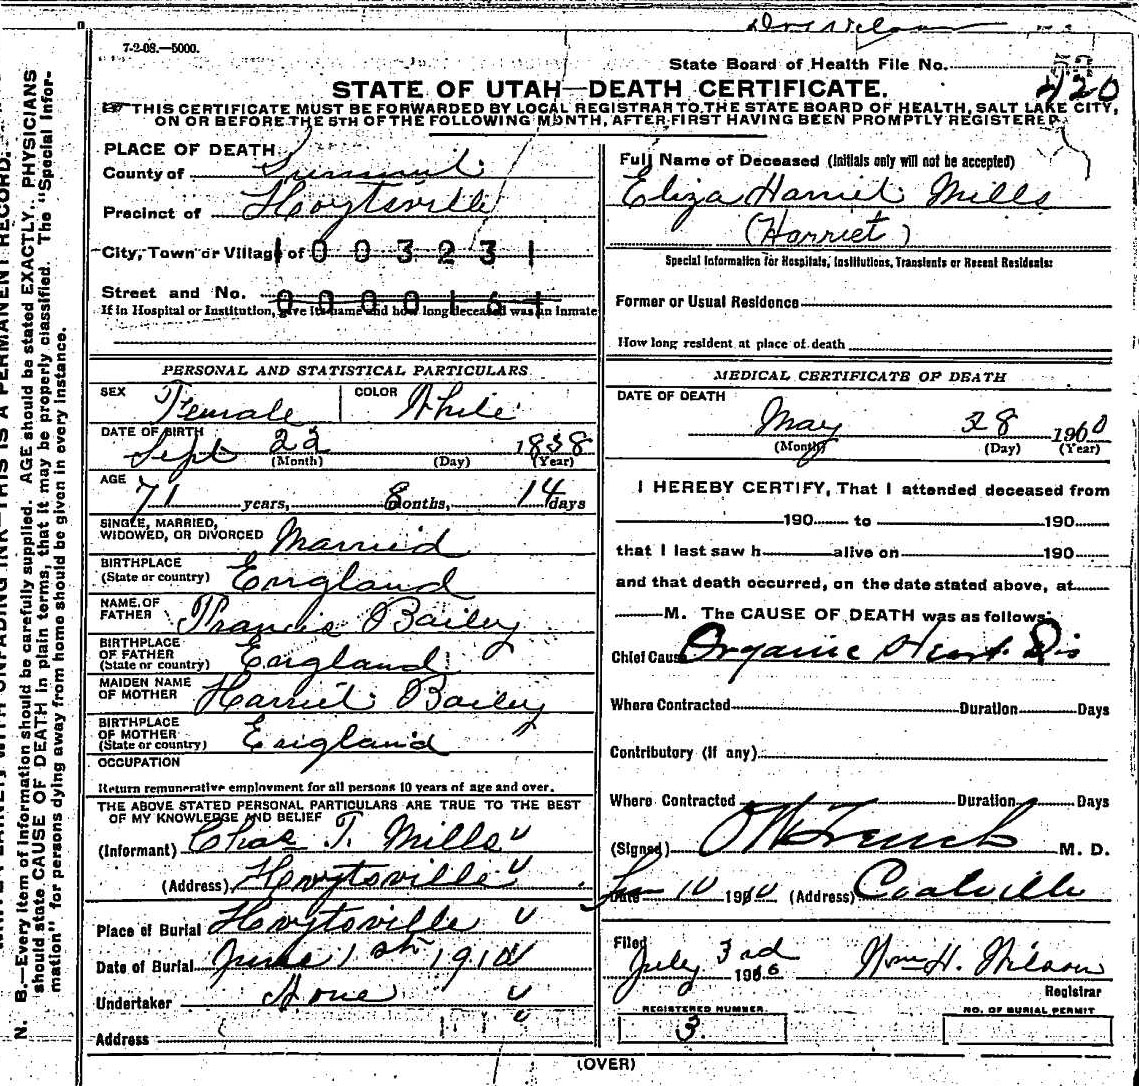 7-2-08.—5000.
State Board of Health File No.
420
STATE OF UTAH—DEATH CERTIFICATE.
THIS CERTIFICATE MUST BE FORWARDED BY LOCAL REGISTRAR TO THE STATE BOARD OF HEALTH, SALT LAKE CITY,
ON OR BEFORE THE 5TH OF THE FOLLOWING MONTH, AFTER FIRST HAVING BEEN PROMPTLY REGISTERED
N. B.—Every item of information should be carefully supplied. AGE should be stated EXACTLY. PHYSICIANS
should state CAUSE OF DEATH in plain terms, that it may be properly classified. The "Special Infor-
mation" for persons dying away from home should be given in every instance.
PLACE OF DEATH
County of Summit
Precinct of Hoytsville
City, Town or Village of 1003231
Street and No. 0000161
If in Hospital or Institution, give its name and how long deceased was an inmate
PERSONAL AND STATISTICAL PARTICULARS
SEX Female COLOR White
DATE OF BIRTH Sept 22 1838
(Month) (Day) (Year)
AGE 71 years, 8 months, 14 days
SINGLE, MARRIED,
WIDOWED, OR DIVORCED Married
BIRTHPLACE
(State or country) England
NAME OF
FATHER Francis Bailey
BIRTHPLACE
OF FATHER
(State or country) England
MAIDEN NAME
OF MOTHER Harriet Bailey
BIRTHPLACE
OF MOTHER
(State or country) England
OCCUPATION
Return remunerative employment for all persons 10 years of age and over.
THE ABOVE STATED PERSONAL PARTICULARS ARE TRUE TO THE BEST
OF MY KNOWLEDGE AND BELIEF
(Informant) Chas. T. Mills
(Address) Hoytsville
Place of Burial Hoytsville
Date of Burial June 1st 1910
Undertaker None
Address
Full Name of Deceased (Initials only will not be accepted)
Eliza Harriet Mills
(Harriet)
Special Information for Hospitals, Institutions, Transients or Recent Residents:
Former or Usual Residence
How long resident at place of death
MEDICAL CERTIFICATE OF DEATH
DATE OF DEATH
May 28 1910
(Month) (Day) (Year)
I HEREBY CERTIFY, That I attended deceased from
190 to 190
that I last saw h alive on 190
and that death occurred, on the date stated above, at
M. The CAUSE OF DEATH was as follows:
Chief Cause Organic Heart Dis
Where Contracted Duration Days
Contributory (If any)
Where Contracted Duration Days
(Signed) M. D.
Date 10 1910 (Address) Coalville
Filed
July 3rd 1910 Wm H. Wilson
Registrar
REGISTERED NUMBER.
3.
NO. OF BURIAL PERMIT
(OVER)